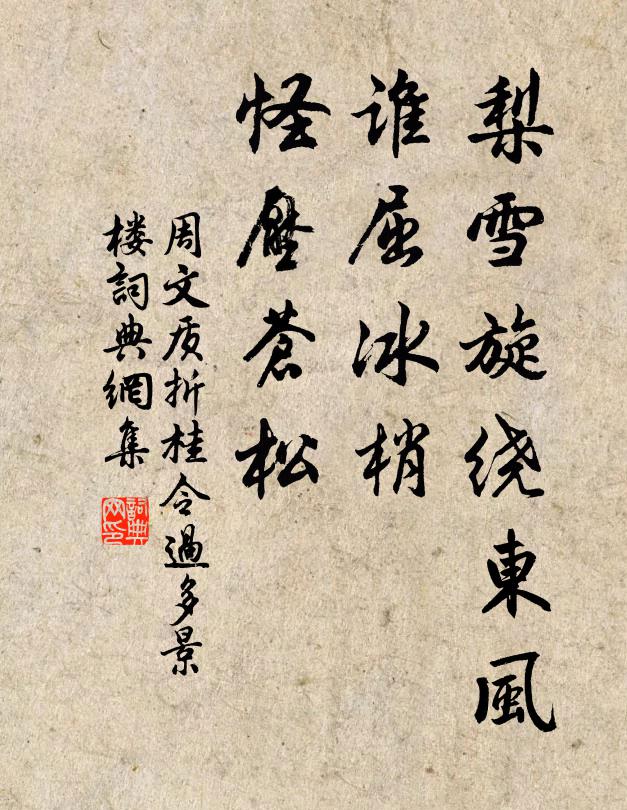 梨雪旋绕東風
谁屈冰梢
怪壓蒼松
周文质折桂令過多景
楼詞典網集
詞典
网印